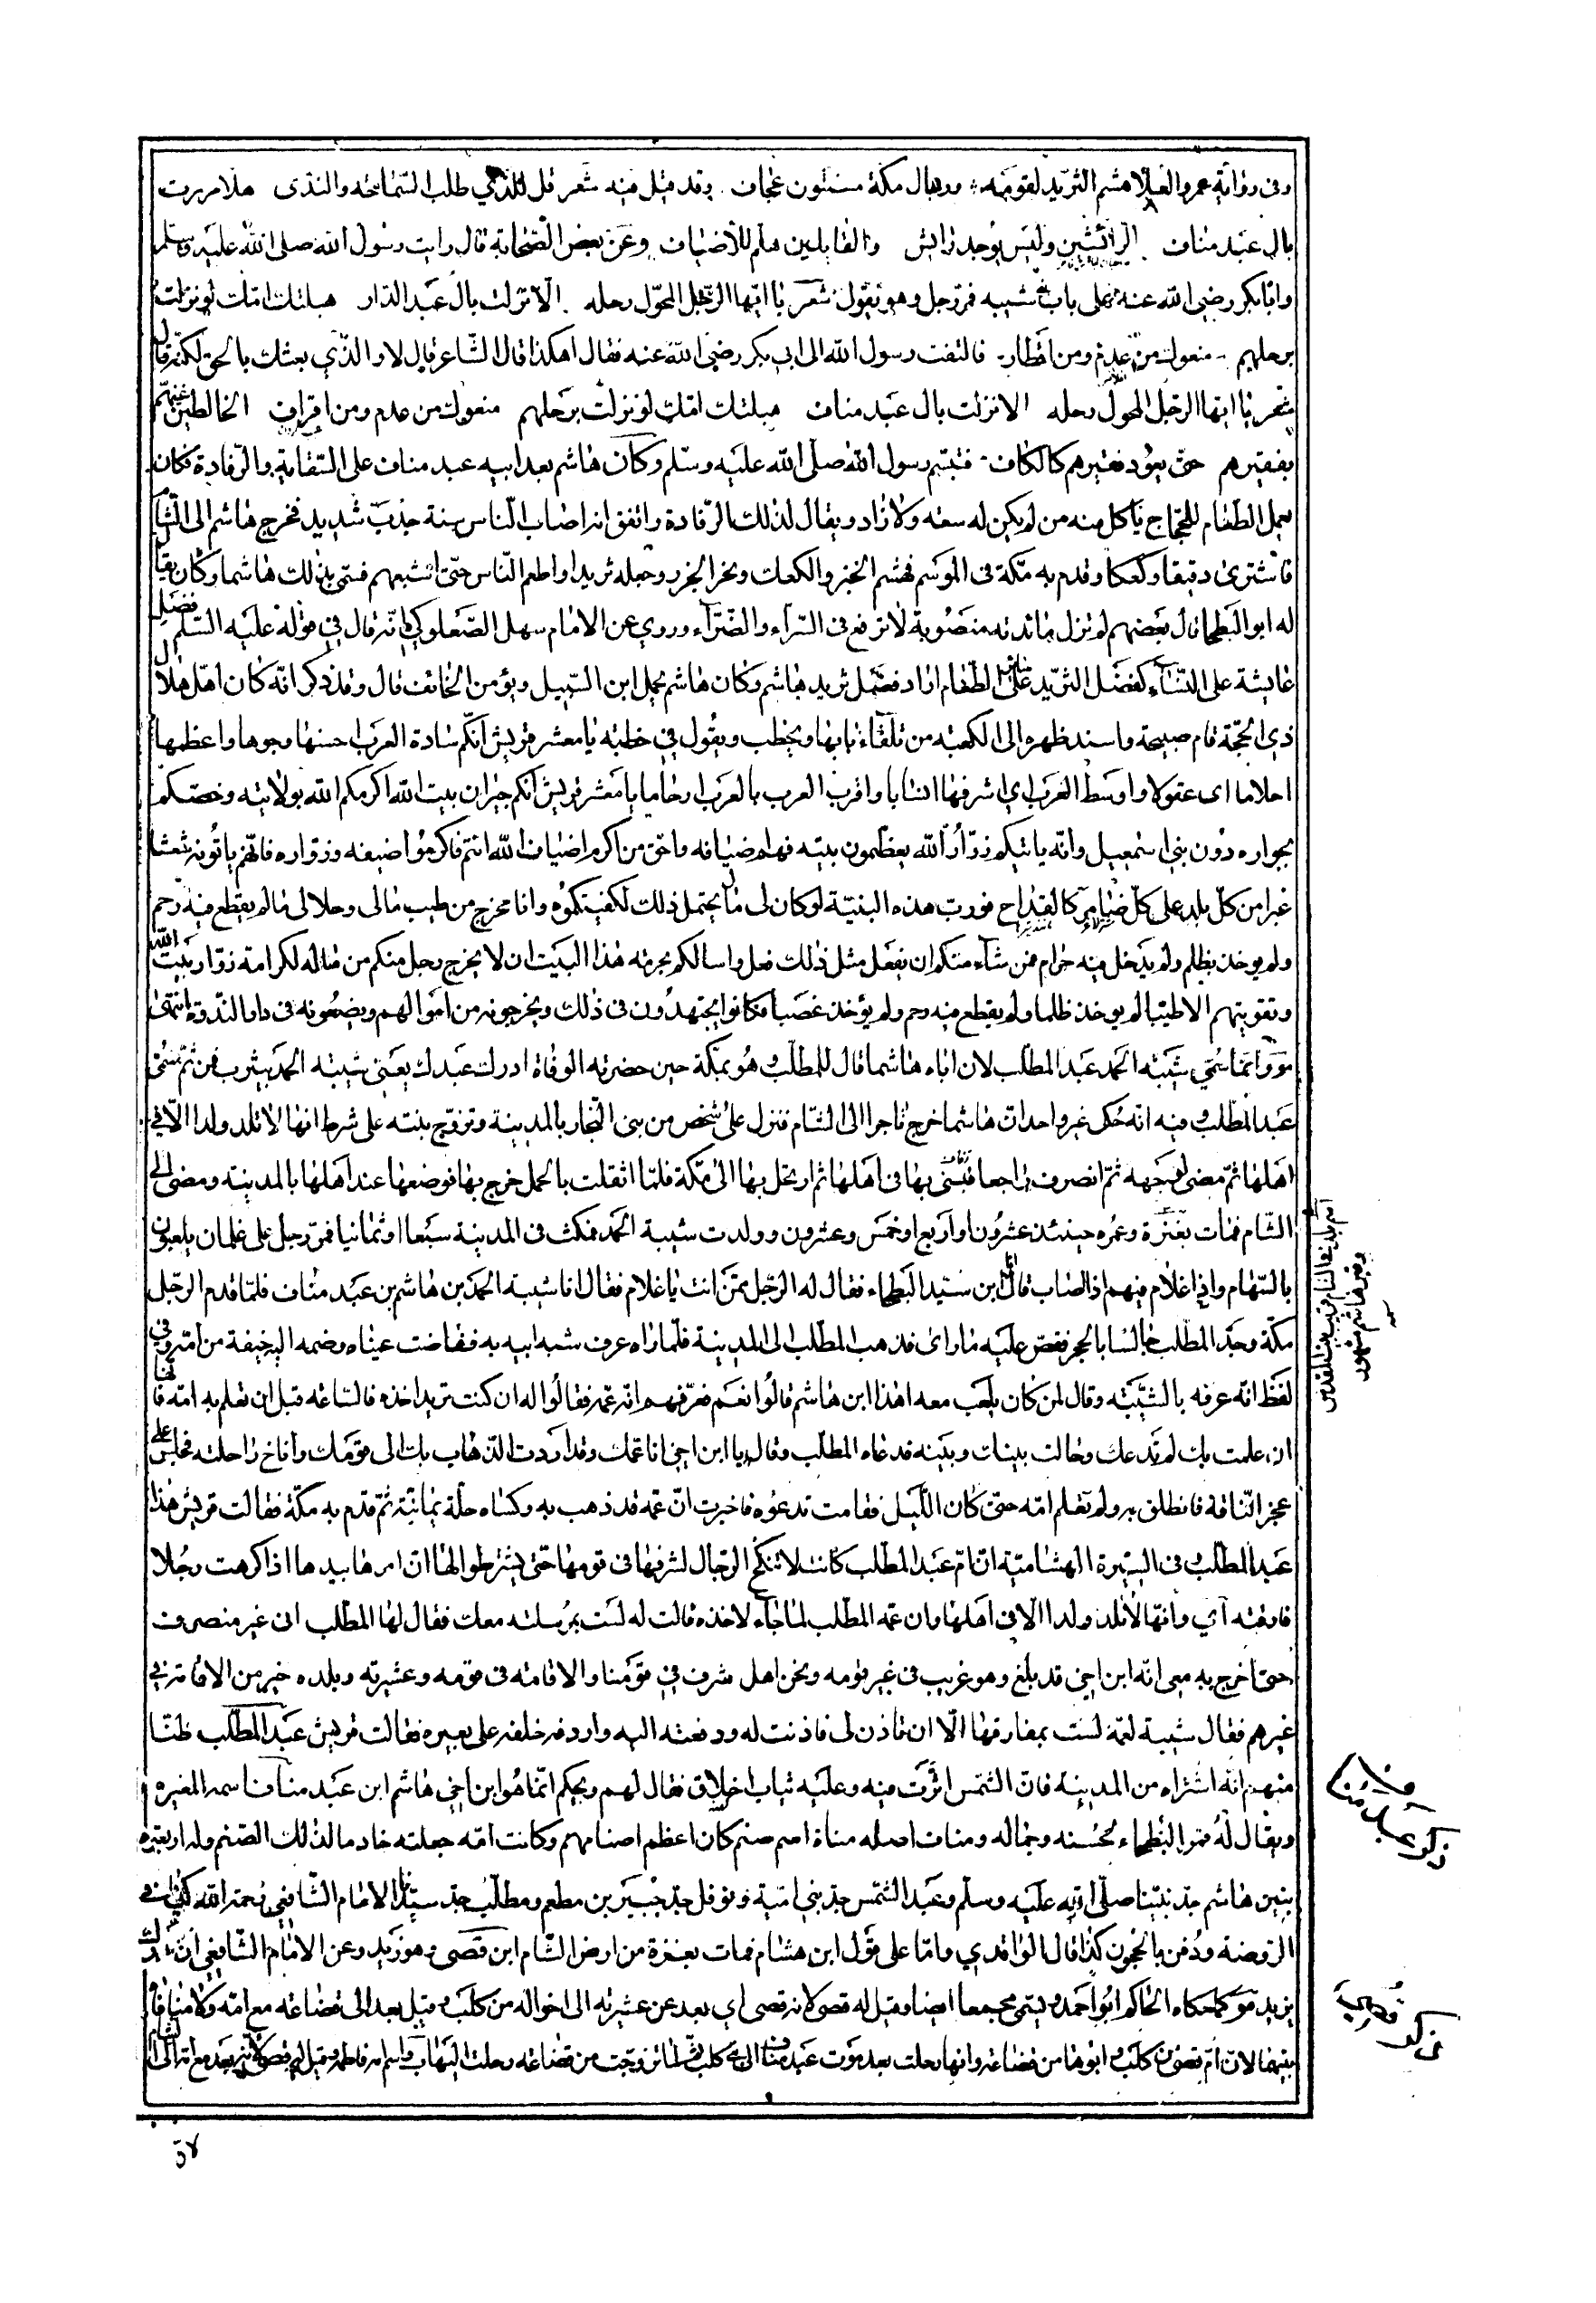 وفى رواية عمرو العلا هشم الثريد لقومه ورجال مكة مسنتون عجاف وقد قيل فيه شعر قل للذي طلب السماحة والندى هلا مررت
بال عبد مناف الرائشين وليس يوجد رايش والقايلين هلم للاضياف وعن بعض الصحابة قال رايت رسول الله صلى الله عليه وسلم
وابا بكر رضي الله عنه على باب بني شيبه فمر رجل وهو يقول شعر يا ايها الرجل المحول رحله الا نزلت بال عبد الدار هبلتك امك لو نزلت
برحلهم منعوك من عدم ومن اقتار فالتفت رسول الله الى ابي بكر رضي الله عنه فقال اهكذا قال الشاعر قال لا والذي بعثك بالحق لكنه قال
شعر يا ايها الرجل المحول رحله الا نزلت بال عبد مناف هبلتك امك لو نزلت برحلهم منعوك من عدم ومن اقراف الخالطين غنيهم
بفقيرهم حتى يعود فقيرهم كالكاف فتبسم رسول الله صلى الله عليه وسلم وكان هاشم بعد ابيه عبد مناف على السقاية والرفادة فكان
يعمل الطعام للحجاج ياكل منه من لم يكن له سعة ولا زاد ويقال لذلك الرفادة واتفق انه اصاب الناس سنة جدب شديد فخرج هاشم الى الشام
فاشترى دقيقا وكعكا وقدم به مكة فى الموسم فهشم الخبز والكعك ونحر الجزر وجعله ثريدا واطعم الناس حتى اشبعهم فسمى بذلك هاشما وكان يقال
له ابو البطحا قال بعضهم لم تزل مائدته منصوبة لا ترفع فى السراء والضراء وروي عن الامام سهل الصعلوكي انه قال في قوله عليه السلم فضل
عايشة على النساء كفضل الثريد على ساير الطعام اراد فضل ثريد هاشم وكان هاشم يحمل ابن السبيل ويؤمن الخائف قال وقد ذكر انه كان اهل هلال
ذي الحجة قام صبيحة واسند ظهره الى الكعبة من تلقاء بابها ويخطب ويقول في خطبته يا معشر قريش انكم سادة العرب احسنها وجوها واعظمها
احلاما اى عقولا واوسط العرب اي اشرفها انسابا واقرب العرب بالعرب ارحاما يا معشر قريش انكم جيران بيت الله اكرمكم الله بولايته وخصكم
بجواره دون بني اسمعيل وانه ياتيكم زوار الله يعظمون بيته فهم اضيافه واحق من اكرم اضياف الله انتم فاكرموا ضيفه وزواره فانهم ياتونه شعثا
غبرا من كل بلد على كل ضامر كالقداح فورب هذه البنية لو كان لى مال يحتمل ذلك لكفيتكموه وانا مخرج من طيب مالى وحلالى مالم يقطع فيه رحم
ولم يوخذ بظلم ولم يدخل فيه حرام فمن شاء منكم ان يفعل مثل ذلك فعل واسالكم بحرمة هذا البيت ان لا يخرج رجل منكم من ماله لكرامة زوار بيت الله
وتقويتهم الا طيبا لم يوخذ ظلما ولم يقطع فيه رحم ولم يؤخذ غصبا فكانوا يجتهدون فى ذلك ويخرجونه من اموالهم ويضعونه فى دار الندوة انتهى
قوله وانما سمي شيبة الحمد عبد المطلب لان اباه هاشما قال للمطلب وهو بمكة حين حضرته الوفاة ادرك عبدك يعنى شيبة الحمد بيثرب فمن ثم سمى
عبد المطلب وفيه انه حكى غير واحد ان هاشما خرج تاجرا الى الشام فنزل على شخص من بنى النجار بالمدينة وتزوج بنته على شرط انها لا تلد ولدا الا في
اهلها ثم مضى لوجهه ثم انصرف راجعا فبنى بها فى اهلها ثم ارتحل بها الى مكة فلما اثقلت بالحمل خرج بها فوضعها عند اهلها بالمدينة ومضى الى
الشام فمات بغزة وعمره حينئذ عشرون او اربع او خمس وعشرون وولدت شيبة الحمد فمكث فى المدينة سبعا او ثمانيا فمر رجل على غلمان يلعبون
بالسهام واذا غلام فيهم اذا اصاب قال انا ابن سيد البطحاء فقال له الرجل ممن انت يا غلام فقال انا شيبة الحمد بن هاشم بن عبد مناف فلما قدم الرجل
مكة وجد المطلب جالسا بالحجر فقص عليه ما راى فذهب المطلب الى المدينة فلما راه عرف شبه ابيه به ففاضت عيناه وضمه اليه خيفة من امه وفى
لفظ انه عرفه بالشبه وقال لمن كان يلعب معه اهذا ابن هاشم قالوا نعم فعرفهم انه عمه فقالوا له ان كنت تريد اخذه فالساعة قبل ان تعلم به امه فانها
ان علمت بك لم تدعك وحالت بينك وبينه فدعاه المطلب وقال يا ابن اخي انا عمك وقد اردت الذهاب بك الى قومك واناخ راحلته فجلس على
عجز الناقة فانطلق به ولم تعلم امه حتى كان الليل فقامت تدعوه فاخبرت ان عمه قد ذهب به وكساه حلة يمانية ثم قدم به مكة فقالت قريش هذا
عبد المطلب وفى السيرة الهشامية ان ام عبد المطلب كانت لا تنكح الرجال لشرفها فى قومها حتى يشترطوا لها ان امرها بيدها اذا كرهت رجلا
فارقته اي وانها لا تلد ولدا الا فى اهلها وان عمه المطلب لما جاء لاخذه قالت له لست بمرسلته معك فقال لها المطلب انى غير منصرف
حتى اخرج به معى انه ابن اخي قد بلغ وهو غريب فى غير قومه ونحن اهل شرف في قومنا والاقامة فى قومه وعشيرته وبلده خير من الاقامة في
غيرهم فقال شيبة لعمه لست بمفارقها الا ان تاذن لى فاذنت له ودفعته اليه واردفه خلفه على بعيره فقالت قريش عبد المطلب ظنا
منهم انه اشتراه من المدينة فان الشمس اثرت فيه وعليه ثياب اخلاق فقال لهم ويحكم انما هو ابن اخي هاشم ابن عبد مناف اسمه المغيره
ويقال له قمر البطحاء لحسنه وجماله ومناف اصله مناة اسم صنم كان اعظم اصنامهم وكانت امه جعلته خادما لذلك الصنم وله اربعة
بنين هاشم جد نبينا صلى الله عليه وسلم وعبد الشمس جد بني امية ونوفل جد جبير بن مطعم ومطلب جد سيدنا الامام الشافعي رحمه الله كذا في
الروضة ودفن بالحجون كذا قال الواقدي واما على قول ابن هشام فمات بغزة من ارض الشام ابن قصى وهو زيد وعن الامام الشافعي ان
يزيد قوله كما حكاه الحاكم ابو احمد ويسمى مجمعا ايضا وقيل له قصى لانه قصى اي بعد عن عشيرته الى اخواله من كلب وقيل بعد الى قضاعة مع امه
لان ام قصى من كلب وابوها من قضاعة وانها رحلت بعد موت عبد مناف الى بني كلب ثم لما تزوجت من قضاعة رحلت اليها
لان
ذكر عبد مناف
ذكر قصي